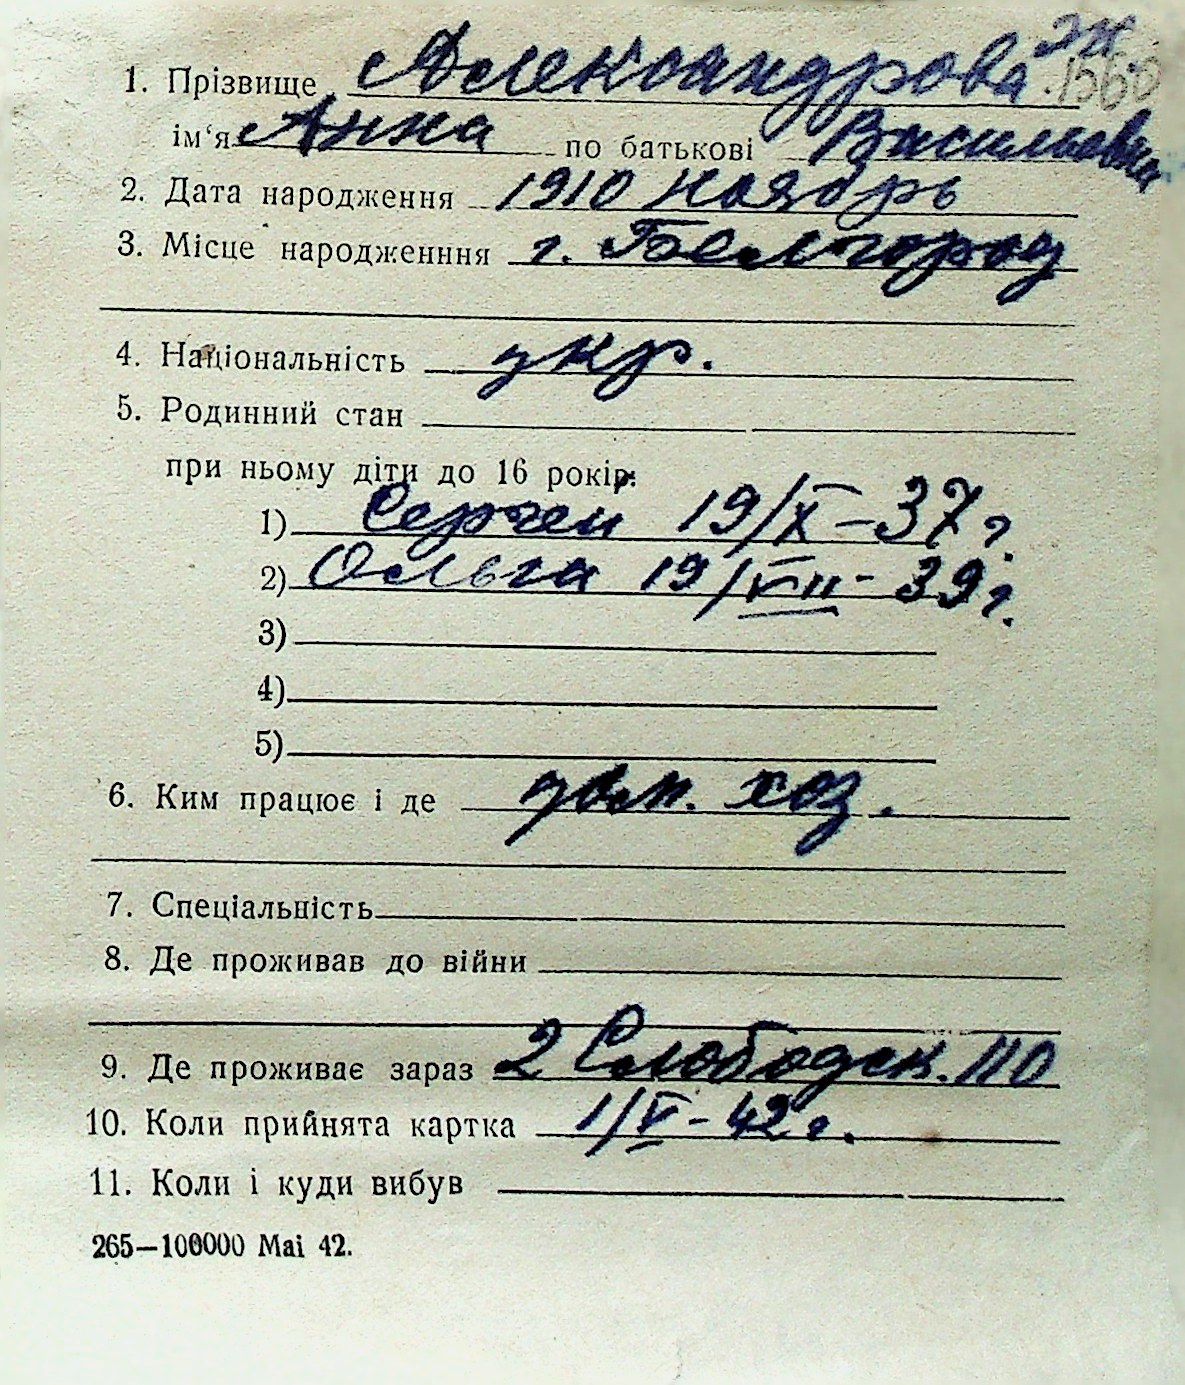 1. Прізвище Александрова
ім‘я Анна по батькові Васильевна
2. Дата народження 1910 ноябрь
3. Місце народженння г. Белгород
4. Національність укр.
5. Родинний стан
при ньому діти до 16 років:
1) Сергей 19/X – 37 г.
2) Ольга 19/VII - 39 г.
3)
4)
5)
6. Ким працює і де дом. хоз.
7. Спеціальність
8. Де проживав до війни
9. Де проживає зараз 2 Слободск. 110
10. Коли прийнята картка 1/V - 42 г.
11. Коли і куди вибув
265—100000 Mai 42.